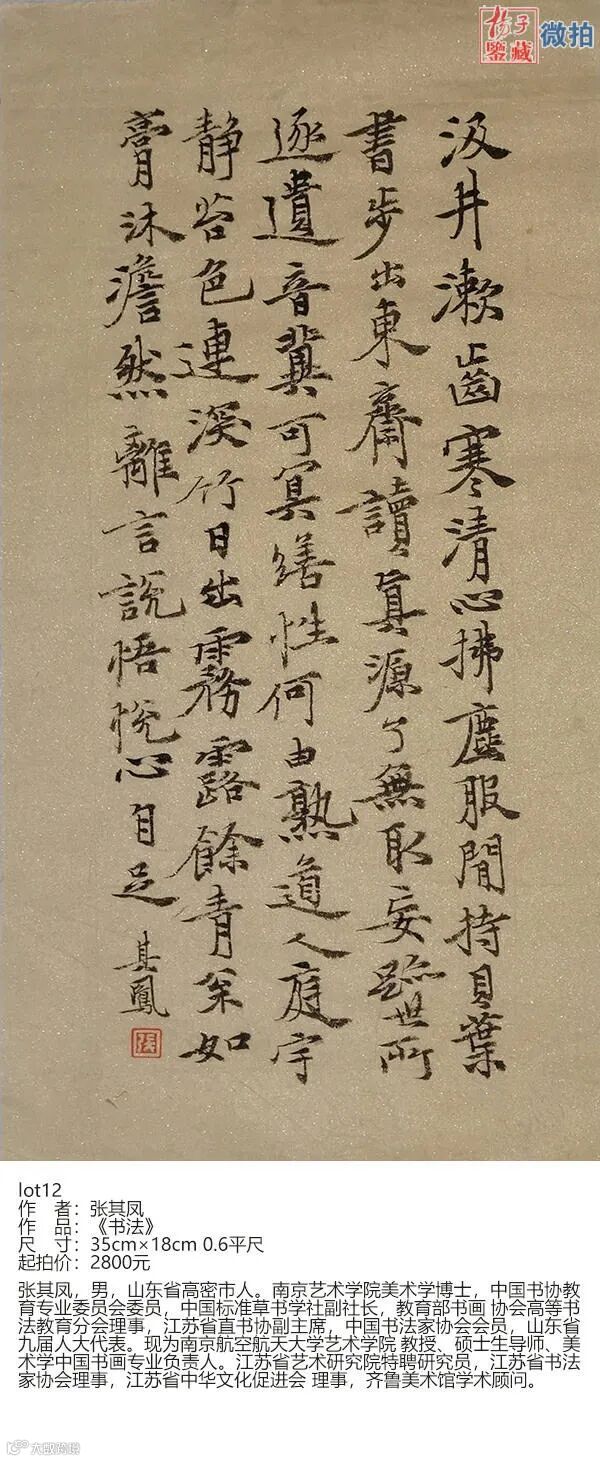 杨子
鉴藏
微拍
汲井漱齒寒清心拂塵服閒持貝葉
書步出東齋讀真源了無取妄跡世所
逐遺言冀可冥繕性何由熟道人庭宇
静苔色連深竹日出霧露餘青松如
膏沐澹然離言說悟悅心自足
其鳳
張
lot12
作 者：张其凤
作 品：《书法》
尺 寸：35cm×18cm 0.6平尺
起拍价：2800元
张其凤，男，山东省高密市人。南京艺术学院美术学博士，中国书协教
育专业委员会委员，中国标准草书学社副社长，教育部书画 协会高等书
法教育分会理事，江苏省直书协副主席，中国书法家协会会员，山东省
九届人大代表。现为南京航空航天大学艺术学院 教授、硕士生导师、美
术学中国书画专业负责人。江苏省艺术研究院特聘研究员，江苏省书法
家协会理事，江苏省中华文化促进会 理事，齐鲁美术馆学术顾问。